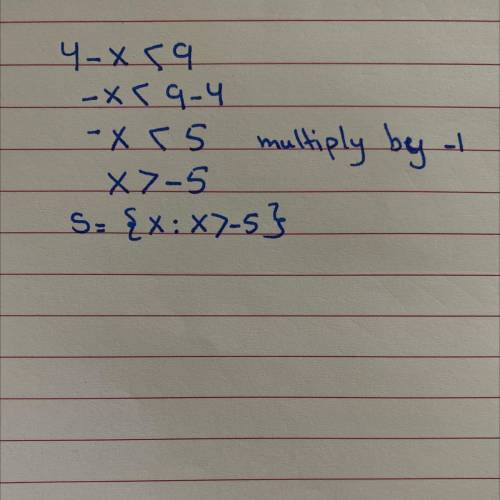 4-x<9
-x<9-4
-x<5 multiply by -1
x>-5
S={x:x>-5}